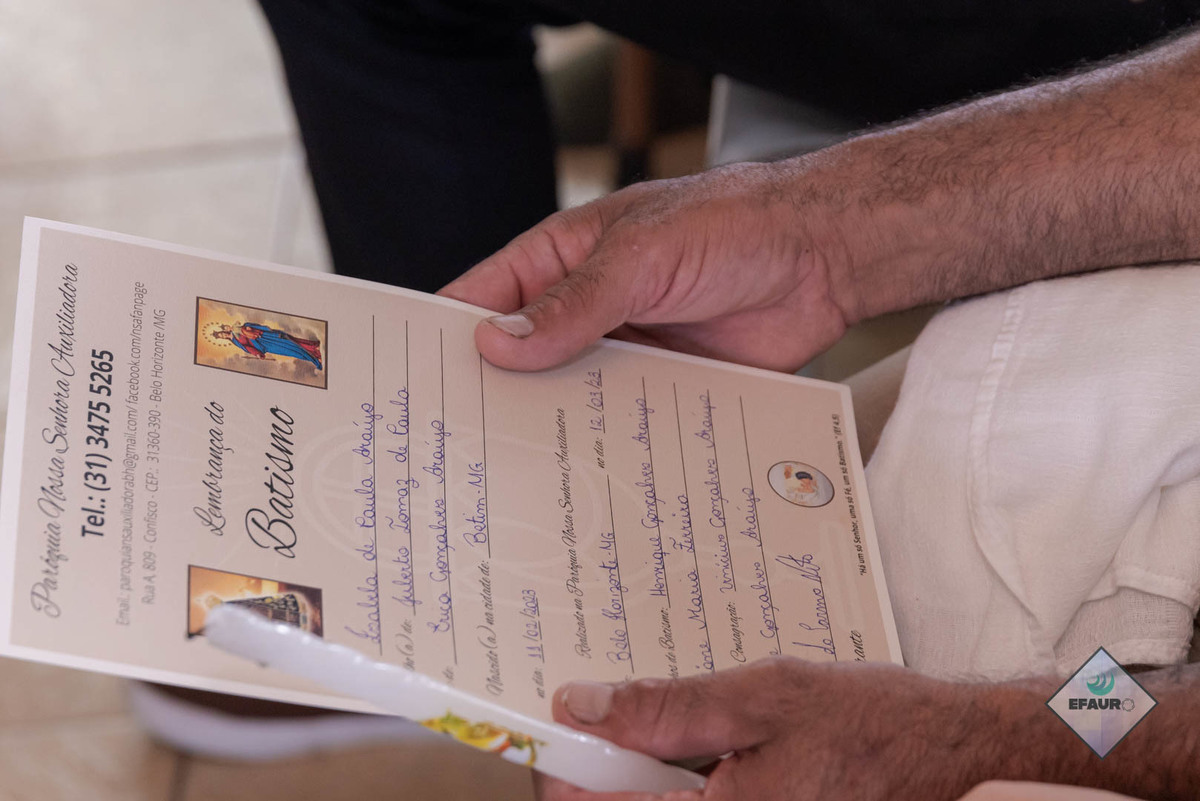 Paróquia Nossa Senhora Auxiliadora
Tel.: (31) 3475 5265
Email.: paroquiansauxiliadorabh@gmail.com/ facebook.com/nsafanpage
Rua A, 809 - Confisco - CEP.: 31360-390 - Belo Horizonte /MG
Lembrança do
Batismo
Isabela de Paula Araújo
(a) de: Gilberto Tomaz de Paula
Gonçalves Araújo
Nascido (a) na cidade de: Betim-MG
no dia: 11/02/2023
Realizado na Paróquia Nossa Senhora Auxiliadora
Belo Horizonte-MG no dia: 12/03/23
de Batismo: Henrique Gonçalves Araújo
Maria Ferreira
Consagração: Vinicius Gonçalves Araújo
Gonçalves Araújo
do Carmo
"Há um só Senhor, uma só Fé, um só Batismo." (Ef 4,5)
EFAURO